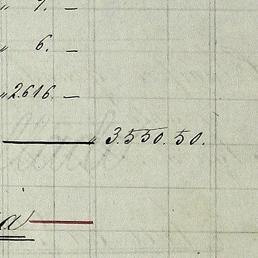 " 7. —
" 6. —
" 2.616. —
" 3.550.50.
a